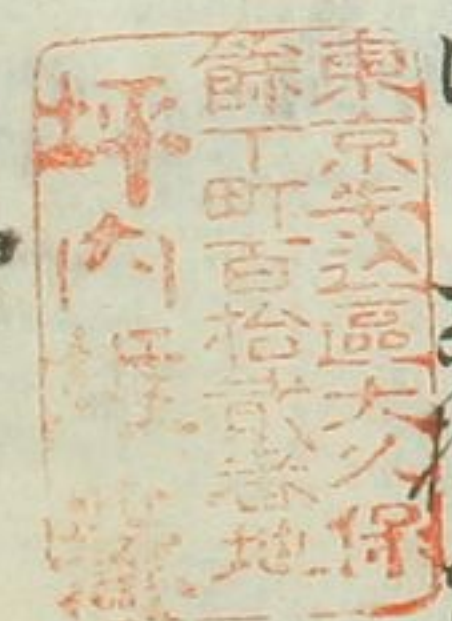 東京牛込區大久保
餘丁町百拾貳番地
坪内